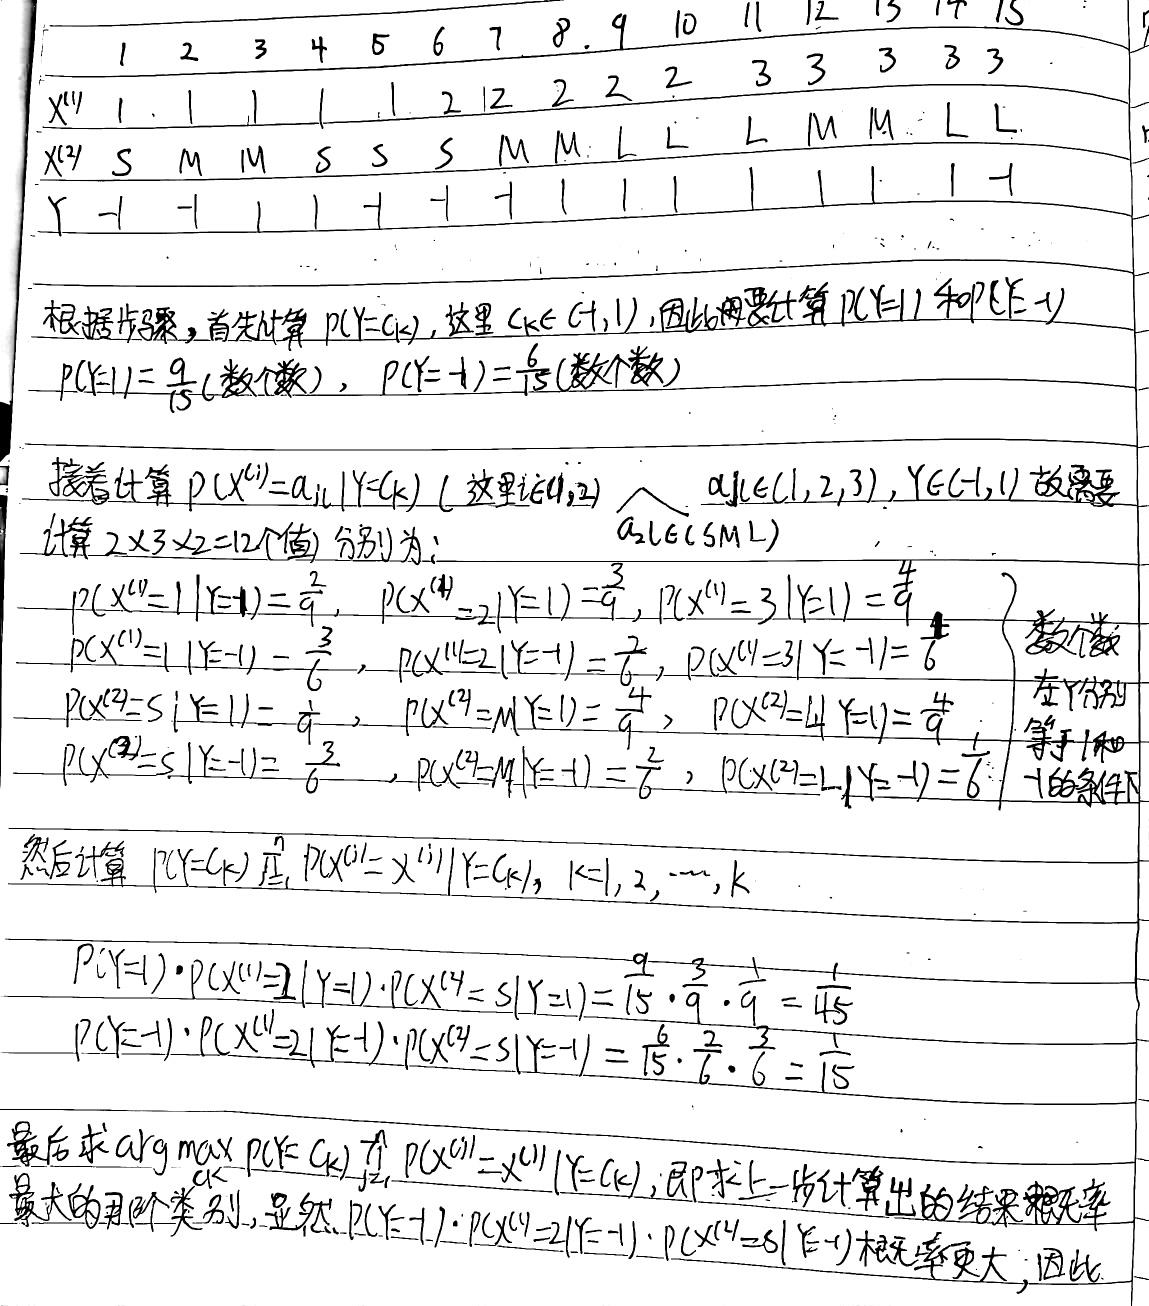 1 2 3 4 5 6 7 8 9 10 11 12 13 14 15
X⁽¹⁾ 1 1 1 1 1 2 2 2 2 2 3 3 3 3 3
X⁽²⁾ S M M S S S M M L L L M M L L
Y -1 -1 1 1 -1 -1 -1 1 1 1 1 1 1 1 -1
根据步骤,首先计算 P(Y=Ck),这里 Ck∈(-1,1),因此需要计算 P(Y=1) 和P(Y=-1)
P(Y=1)=9/15(数个数), P(Y=-1)=6/15(数个数)
接着计算 P(X⁽ʲ⁾=ajl|Y=Ck)(这里j∈(1,2) ajl∈(1,2,3),Y∈(-1,1) 故需要
a2l∈(S M L)
计算 2×3×2=12个值) 分别为:
P(X⁽¹⁾=1|Y=1)=2/9, P(X⁽¹⁾=2|Y=1)=3/9, P(X⁽¹⁾=3|Y=1)=4/9
P(X⁽¹⁾=1|Y=-1)=3/6, P(X⁽¹⁾=2|Y=-1)=2/6, P(X⁽¹⁾=3|Y=-1)=1/6
P(X⁽²⁾=S|Y=1)=1/9, P(X⁽²⁾=M|Y=1)=4/9, P(X⁽²⁾=L|Y=1)=4/9
P(X⁽²⁾=S|Y=-1)=3/6, P(X⁽²⁾=M|Y=-1)=2/6, P(X⁽²⁾=L|Y=-1)=1/6
数个数
在Y分别
等于1和
-1的条件下
然后计算 P(Y=Ck) ∏ⁿj=1 P(X⁽ʲ⁾=x⁽ʲ⁾|Y=Ck), k=1,2,…,k
P(Y=1)·P(X⁽¹⁾=2|Y=1)·P(X⁽²⁾=S|Y=1)=9/15·3/9·1/9=1/45
P(Y=-1)·P(X⁽¹⁾=2|Y=-1)·P(X⁽²⁾=S|Y=-1)=6/15·2/6·3/6=1/15
最后求 arg max P(Y=Ck) ∏ⁿj=1 P(X⁽ʲ⁾=x⁽ʲ⁾|Y=Ck),即求上一步计算出的结果概率
Ck
最大的那个类别,显然 P(Y=-1)·P(X⁽¹⁾=2|Y=-1)·P(X⁽²⁾=S|Y=-1)概率更大,因此